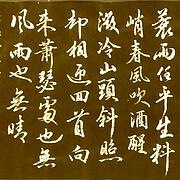 蓑雨任平生料
峭春風吹酒醒
微冷山頭斜照
却相迎回首向
来蕭瑟處也無
風雨也無晴